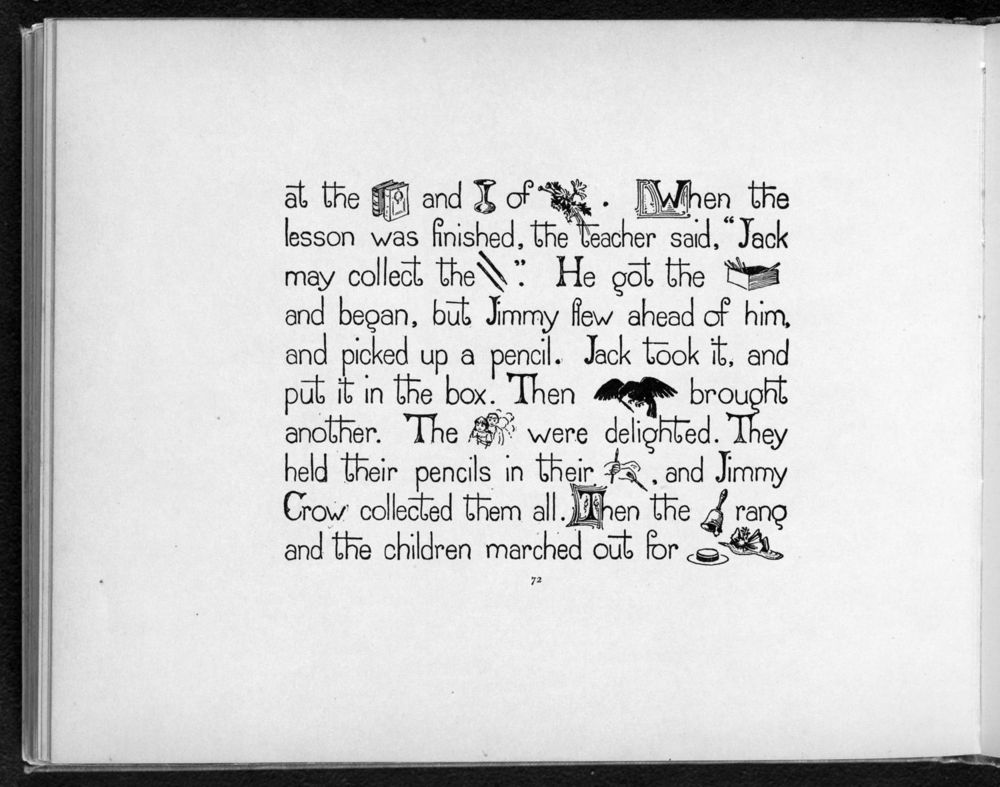 at the and of . When the
lesson was finished, the teacher said, "Jack
may collect the ". He got the
and began, but Jimmy flew ahead of him,
and picked up a pencil. Jack took it, and
put it in the box. Then brought
another. The were delighted. They
held their pencils in their , and Jimmy
Crow collected them all. Then the rang
and the children marched out for
72